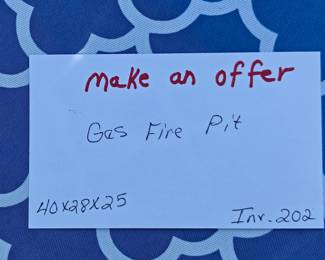 Make an offer
Gas Fire Pit
40x28x25
Inv. 202